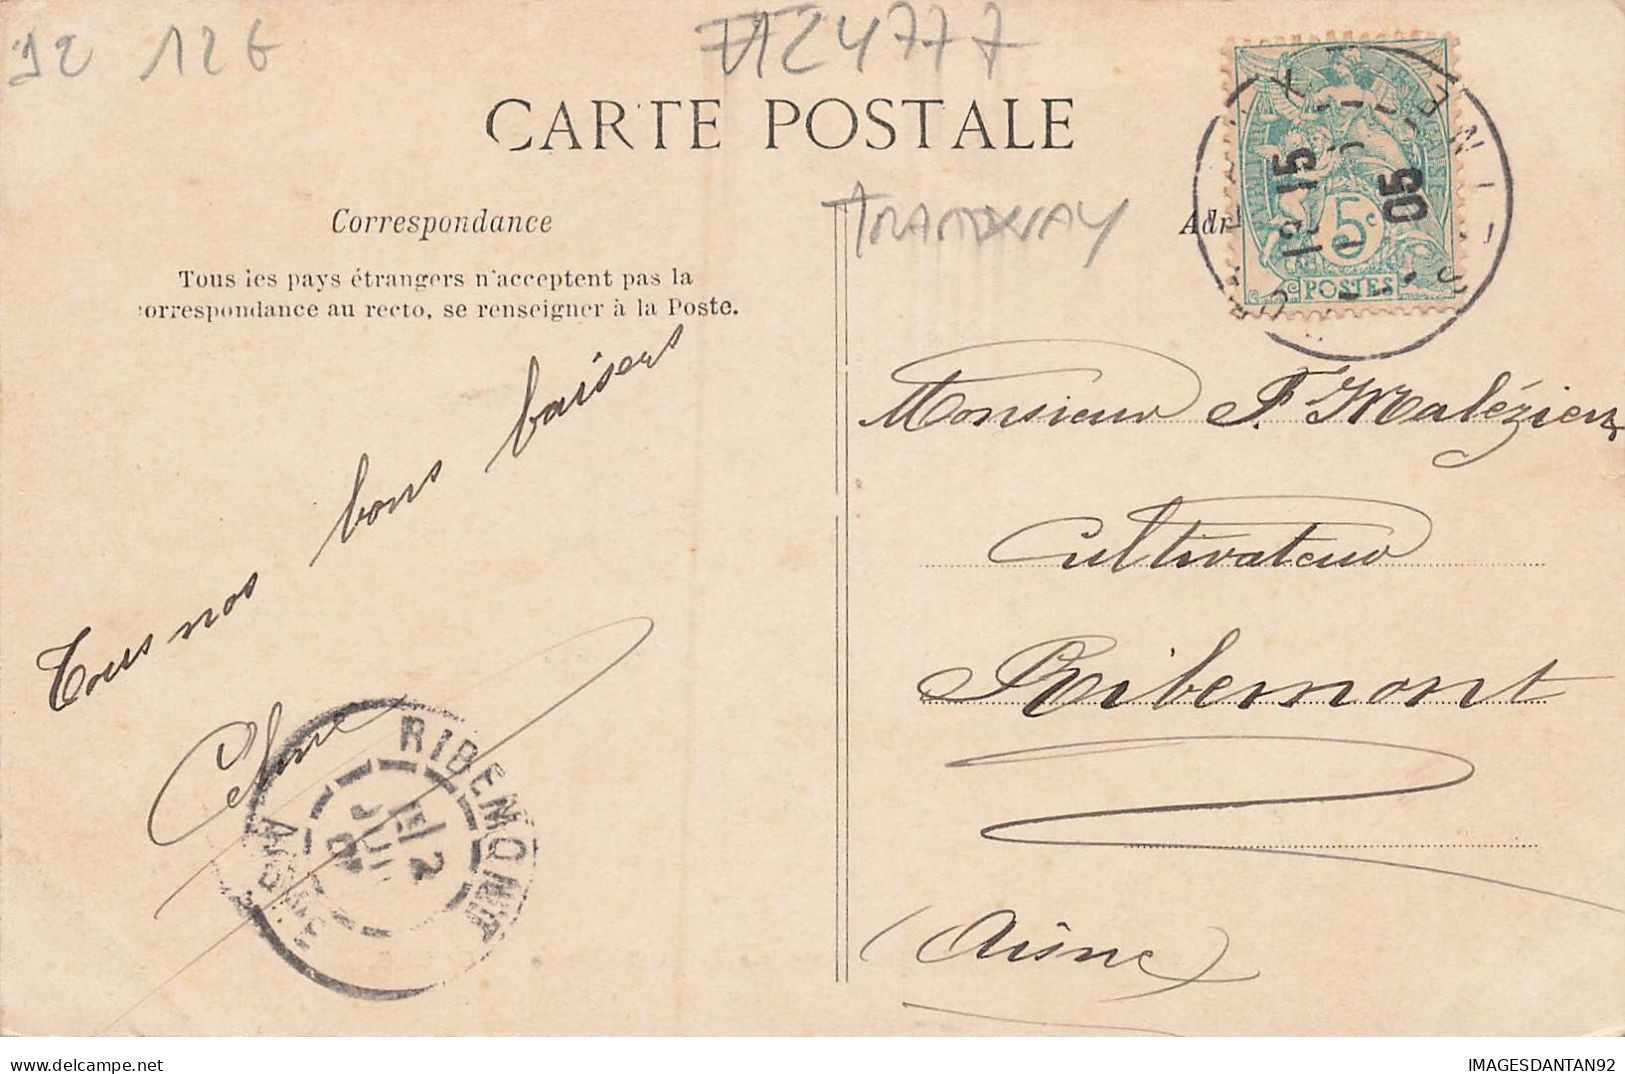 92 12€
A24777
CARTE POSTALE
Correspondance
Tous les pays étrangers n'acceptent pas la
correspondance au recto, se renseigner à la Poste.
Tous nos bons baisers
TRAMWAY
Adr
12 15
05
5c
POSTES
Monsieur F. Malézieux
Cultivateur
Ribemont
(Aisne)
RIBEMONT
AISNE
IMAGESDANTAN92